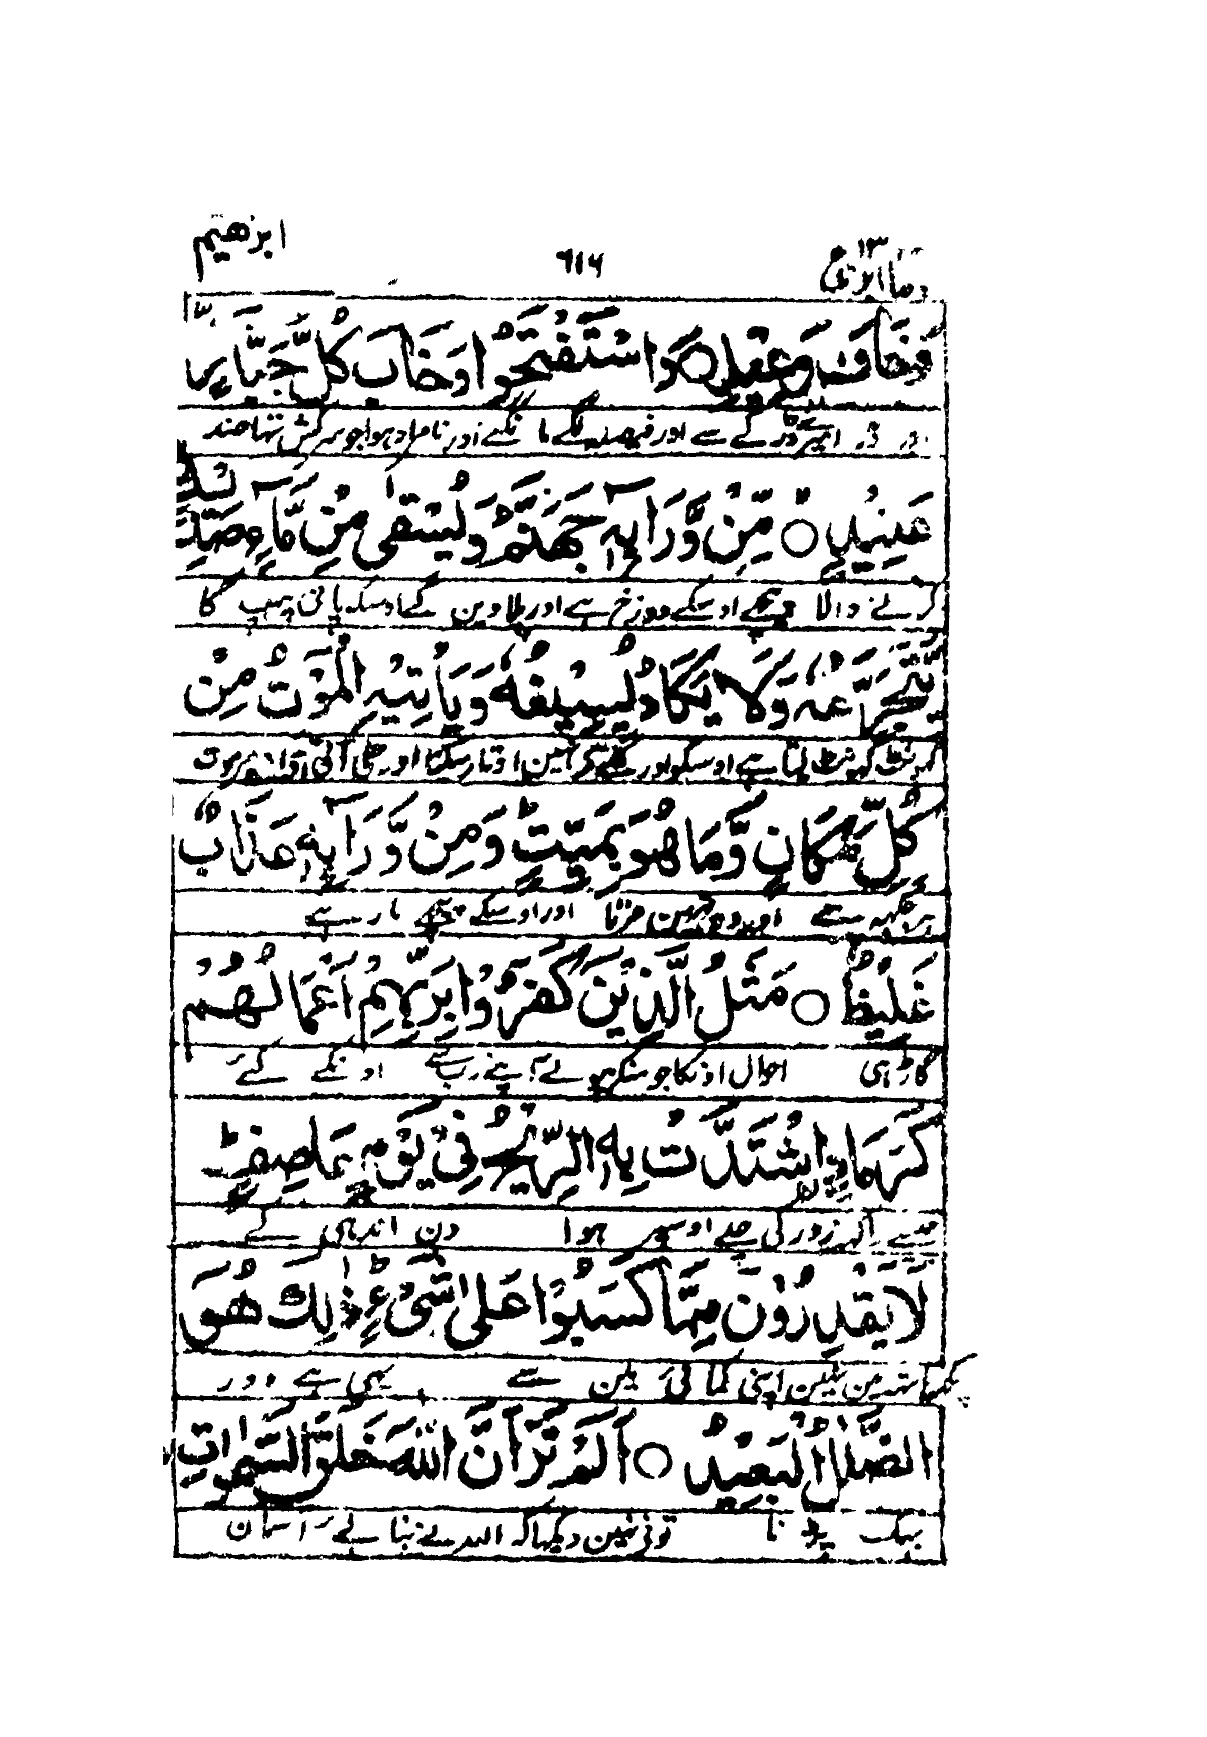 وما ابرئ ١٣ ٦١٦ ابرٰهيم
وَخَافَ وَعِيْدِ ○ وَاسْتَفْتَحُوْا وَخَابَ كُلُّ جَبَّارٍ
اور ڈر سے اور فيصلہ لگے ما نگنے اور نامراد ہوا جو سركش تہا ضد
عَنِيْدٍ ○ مِّنْ وَّرَآئِهٖ جَهَنَّمُ وَيُسْقٰى مِنْ مَّآءٍ صَدِيْدٍ
كرنے والا پيچھے اوسكے دوزخ ہے اور پلاوين گے اوسكو پانی پيپ كا
يَّتَجَرَّعُهٗ وَلَا يَكَادُ يُسِيْغُهٗ وَيَأْتِيْهِ الْمَوْتُ مِنْ
گہونٹ گہونٹ ليتا ہے اوسكو اور نہين اوتار سكتا اور چلی آتی موت
كُلِّ مَكَانٍ وَّمَا هُوَ بِمَيِّتٍ وَمِنْ وَّرَآئِهٖ عَذَابٌ
ہر جگہہ سے اور وہ نہين مرتا اور اوسكے پيچھے مار ہے
غَلِيْظٌ ○ مَثَلُ الَّذِيْنَ كَفَرُوْا بِرَبِّهِمْ اَعْمَالُهُمْ
گاڑہی احوال اونكا جو منكر ہوئے اپنے رب سے اونكے كئے
كَرَمَادِ اشْتَدَّتْ بِهِ الرِّيْحُ فِيْ يَوْمٍ عَاصِفٍ
جيسے راكہہ زور كی چلے اوسپر ہوا دن اندہی كے
لَا يَقْدِرُوْنَ مِمَّا كَسَبُوْا عَلٰى شَيْءٍ ذٰلِكَ هُوَ
كچھ ہاتہہ مين نہين اپنی كمائی مين سے يہی ہے دور
الضَّلٰلُ الْبَعِيْدُ ○ اَلَمْ تَرَ اَنَّ اللّٰهَ خَلَقَ السَّمٰوٰتِ
بہك پڑ نا تونی نہين ديكہا كہ اللہ نے بنائے آسمان